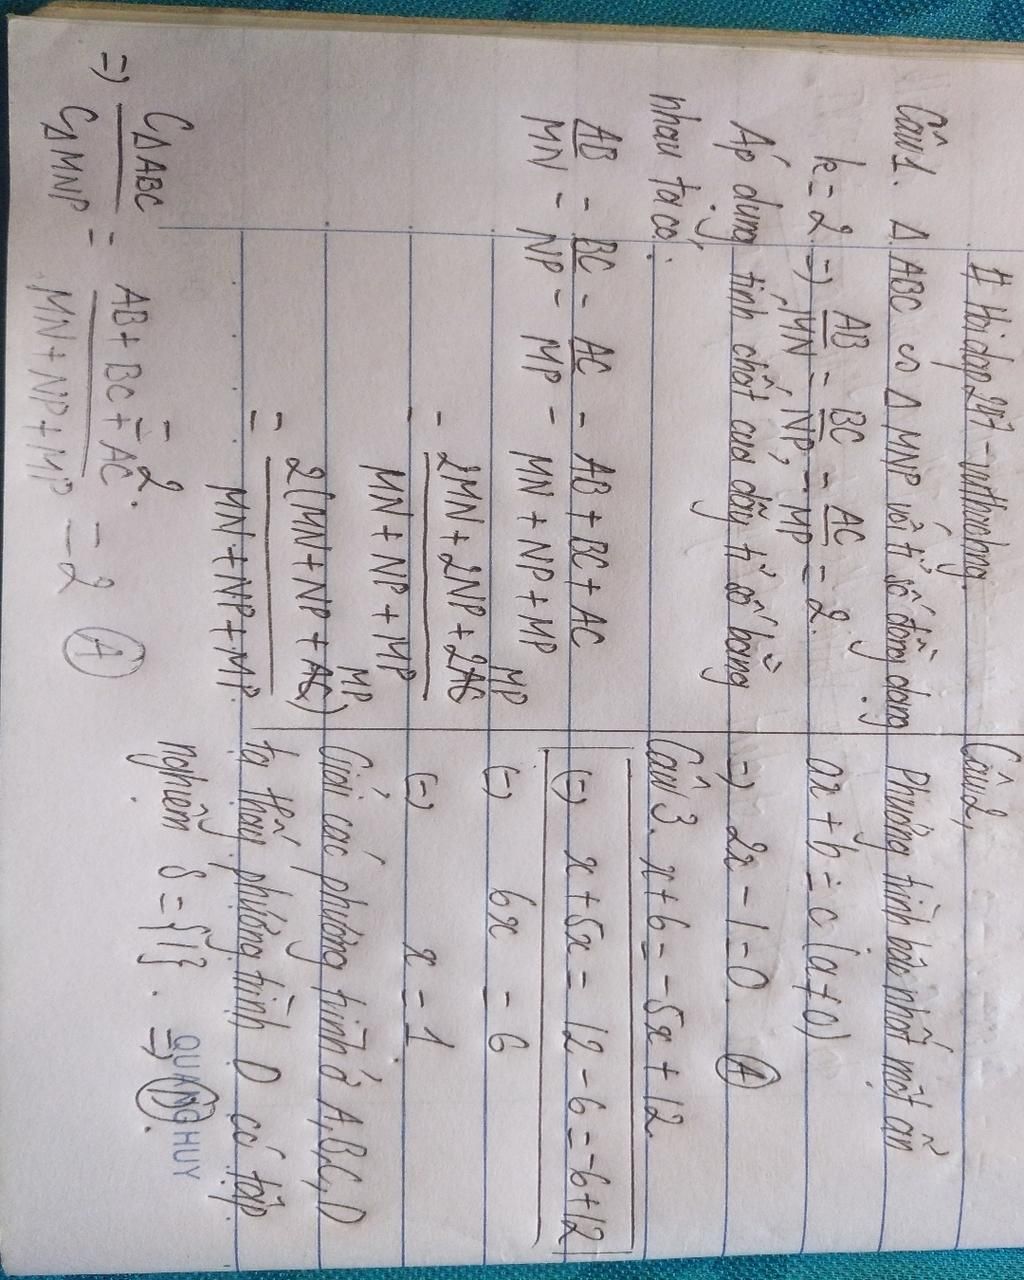 # Hoidap247 -
Câu 1. Δ ABC ∽ Δ MNP với tỉ số đồng dạng
k = 2 => AB/MN = BC/NP = AC/MP = 2.
Áp dụng tính chất của dãy tỉ số bằng
nhau ta có:
AB/MN = BC/NP = AC/MP = AB + BC + AC / MN + NP + MP
= 2MN + 2NP + 2AC MP / MN + NP + MP
= 2(MN + NP + AC MP) / MN + NP + MP
= 2.
=> CΔABC / CΔMNP = AB + BC + AC / MN + NP + MP = 2 (A)
Câu 2,
Phương trình bậc nhất một ẩn
ax + b = 0 (a ≠ 0)
=> 2x - 1 = 0 (A)
Câu 3. x + 6 = -5x + 12
(=) x + 5x = 12 - 6 = -6 + 12
(=) 6x = 6
(=) x = 1.
Giải các phương trình ở A, B, C, D
ta thấy phương trình D có tập
nghiệm S = {1}. => (D).
QUANG HUY